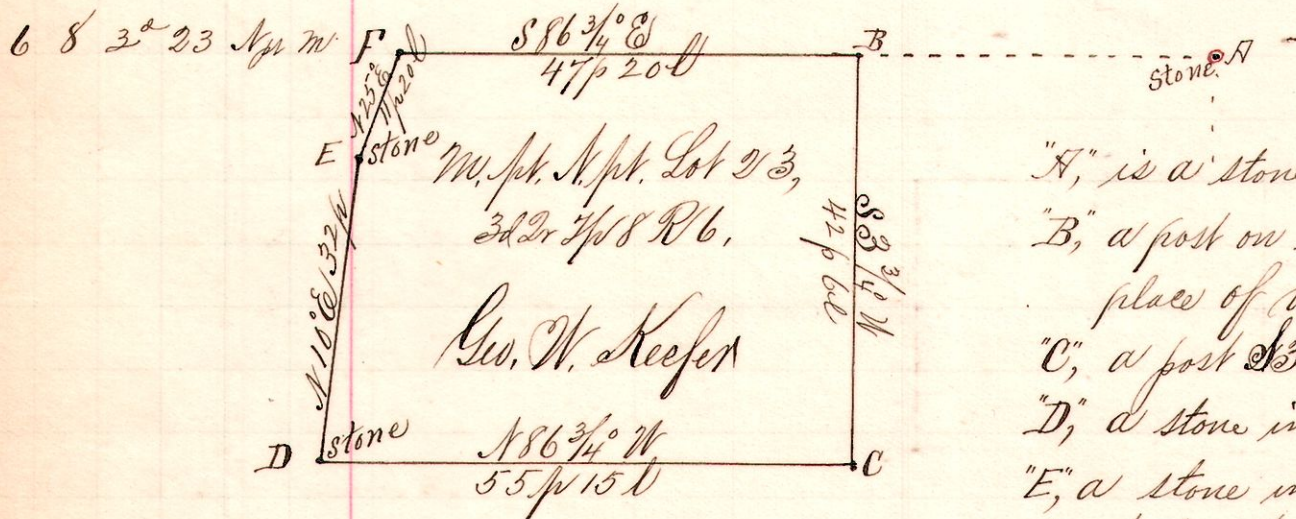 6 8 3d 23 Npt m
F
S 86 3/4° E
B
47p 20l
Stone. A
N 25° E
11p 20l
E stone
M. pt. N. pt. Lot 23,
3d 2r Tp 8 R 6.
S 3 3/4° W
42p 6l
N 10° E 32p
Geo. W. Keefer
D stone
N 86 3/4° W
C
55p 15l
"A", is a stone
"B", a post on
place of
"C", a post S3
"D", a stone in
"E", a stone in